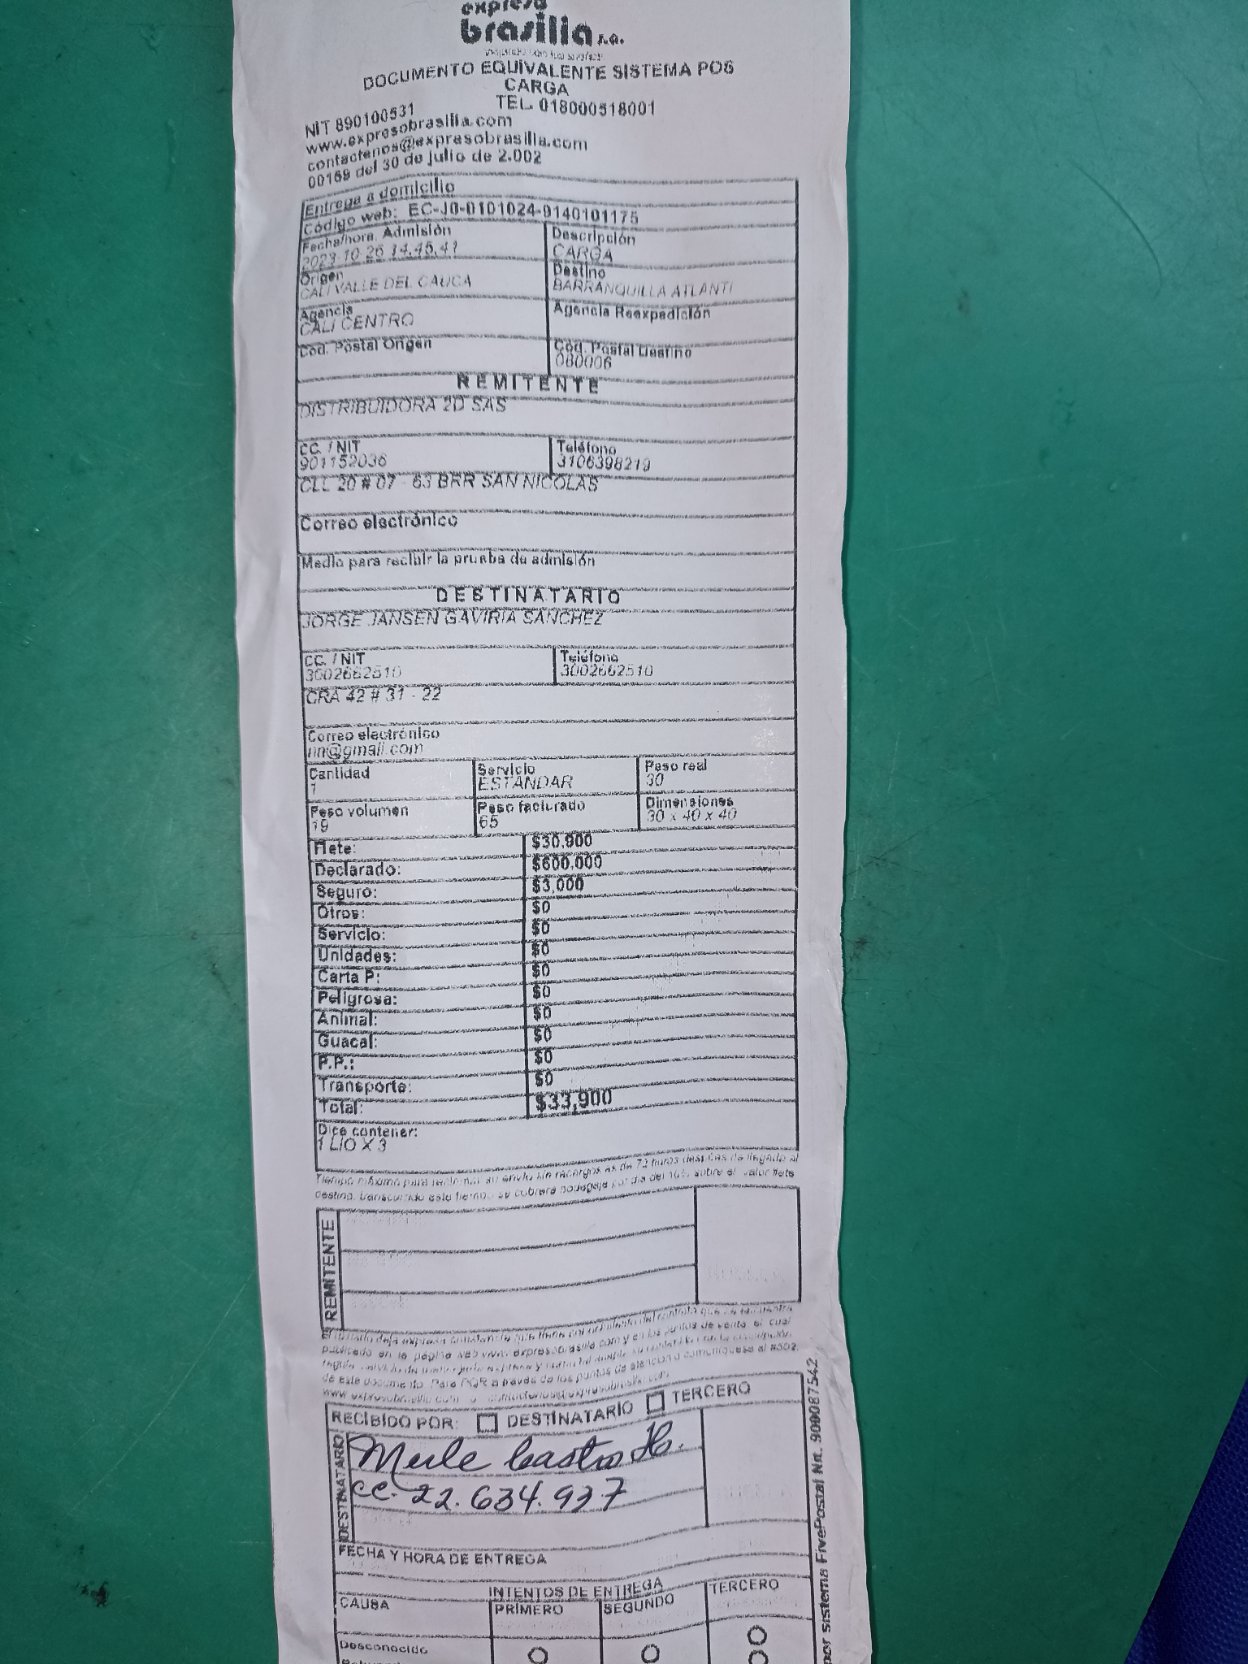 expreso
brasilia s.a.
DOCUMENTO EQUIVALENTE SISTEMA POS
CARGA
NIT 890100531 TEL. 018000518001
www.expresobrasilia.com
contactenos@expresobrasilia.com
00169 del 30 de julio de 2.002
Entrega a domicilio
Código web: EC-J0-0101024-0140101175
Fecha/hora. Admisión Descripción
2023-10-26 14.45.41 CARGA
Origen Destino
CALI VALLE DEL CAUCA BARRANQUILLA ATLANTI
Agencia Agencia Reexpedición
CALI CENTRO
Cód. Postal Origen Cód. Postal Destino
080006
REMITENTE
DISTRIBUIDORA 2D SAS
CC. / NIT Teléfono
901152036 3106398219
CLL 20 # 07 - 63 BRR SAN NICOLAS
Correo electrónico
Medio para recibir la prueba de admisión
DESTINATARIO
JORGE JANSEN GAVIRIA SANCHEZ
CC. / NIT Teléfono
3002662510 3002662510
CRA 42 # 31 - 22
Correo electrónico
nn@gmail.com
Cantidad Servicio Peso real
1 ESTANDAR 30
Peso volumen Peso facturado Dimensiones
19 65 30 x 40 x 40
Flete: $30,900
Declarado: $600,000
Seguro: $3,000
Otros: $0
Servicio: $0
Unidades: $0
Carta P: $0
Peligrosa: $0
Animal: $0
Guacal: $0
P.P.: $0
Transporte: $0
Total: $33,900
Dice contener:
1 LIO X 3
Tiempo máximo para reclamar su envío sin recargos es de 72 horas después de llegado al
destino, transcurrido este tiempo se cobrará bodegaje por día del 10% sobre el valor flete
REMITENTE
publicado en la página web www.expresobrasilia.com y en los puntos de venta, el cual
de este documento. Para PQR a través de los puntos de atención o comuníquese al #502,
RECIBIDO POR: DESTINATARIO TERCERO
DESTINATARIO
Castro
cc. 22.634.937
FECHA Y HORA DE ENTREGA
INTENTOS DE ENTREGA
CAUSA PRIMERO SEGUNDO TERCERO
Desconocido
por sistema FivePostal Nit. 900087542